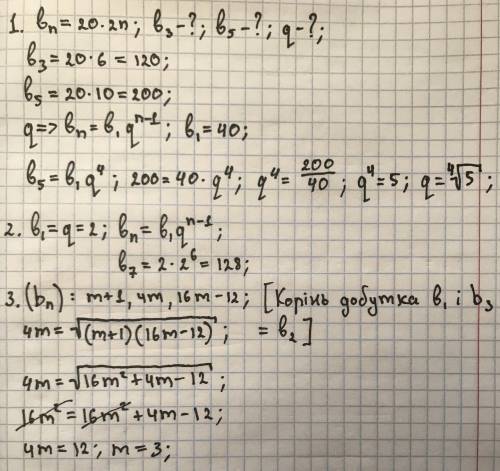 1. bn = 20·2n; b3 - ?; b5 - ?; q - ?;
b3 = 20·6 = 120;
b5 = 20·10 = 200;
q => bn = b1 q^(n-1); b1 = 40;
b5 = b1 q^4; 200 = 40·q^4; q^4 = 200/40; q^4 = 5; q = ⁴√5;
2. b1 = q = 2; bn = b1 q^(n-1);
b7 = 2·2^6 = 128;
3. (bn): m+1, 4m, 16m-12; [Корінь добутка b1 і b3
4m = √((m+1)(16m-12)); = b2]
4m = √(16m²+4m-12);
16m² = 16m² + 4m - 12;
4m = 12; m = 3;